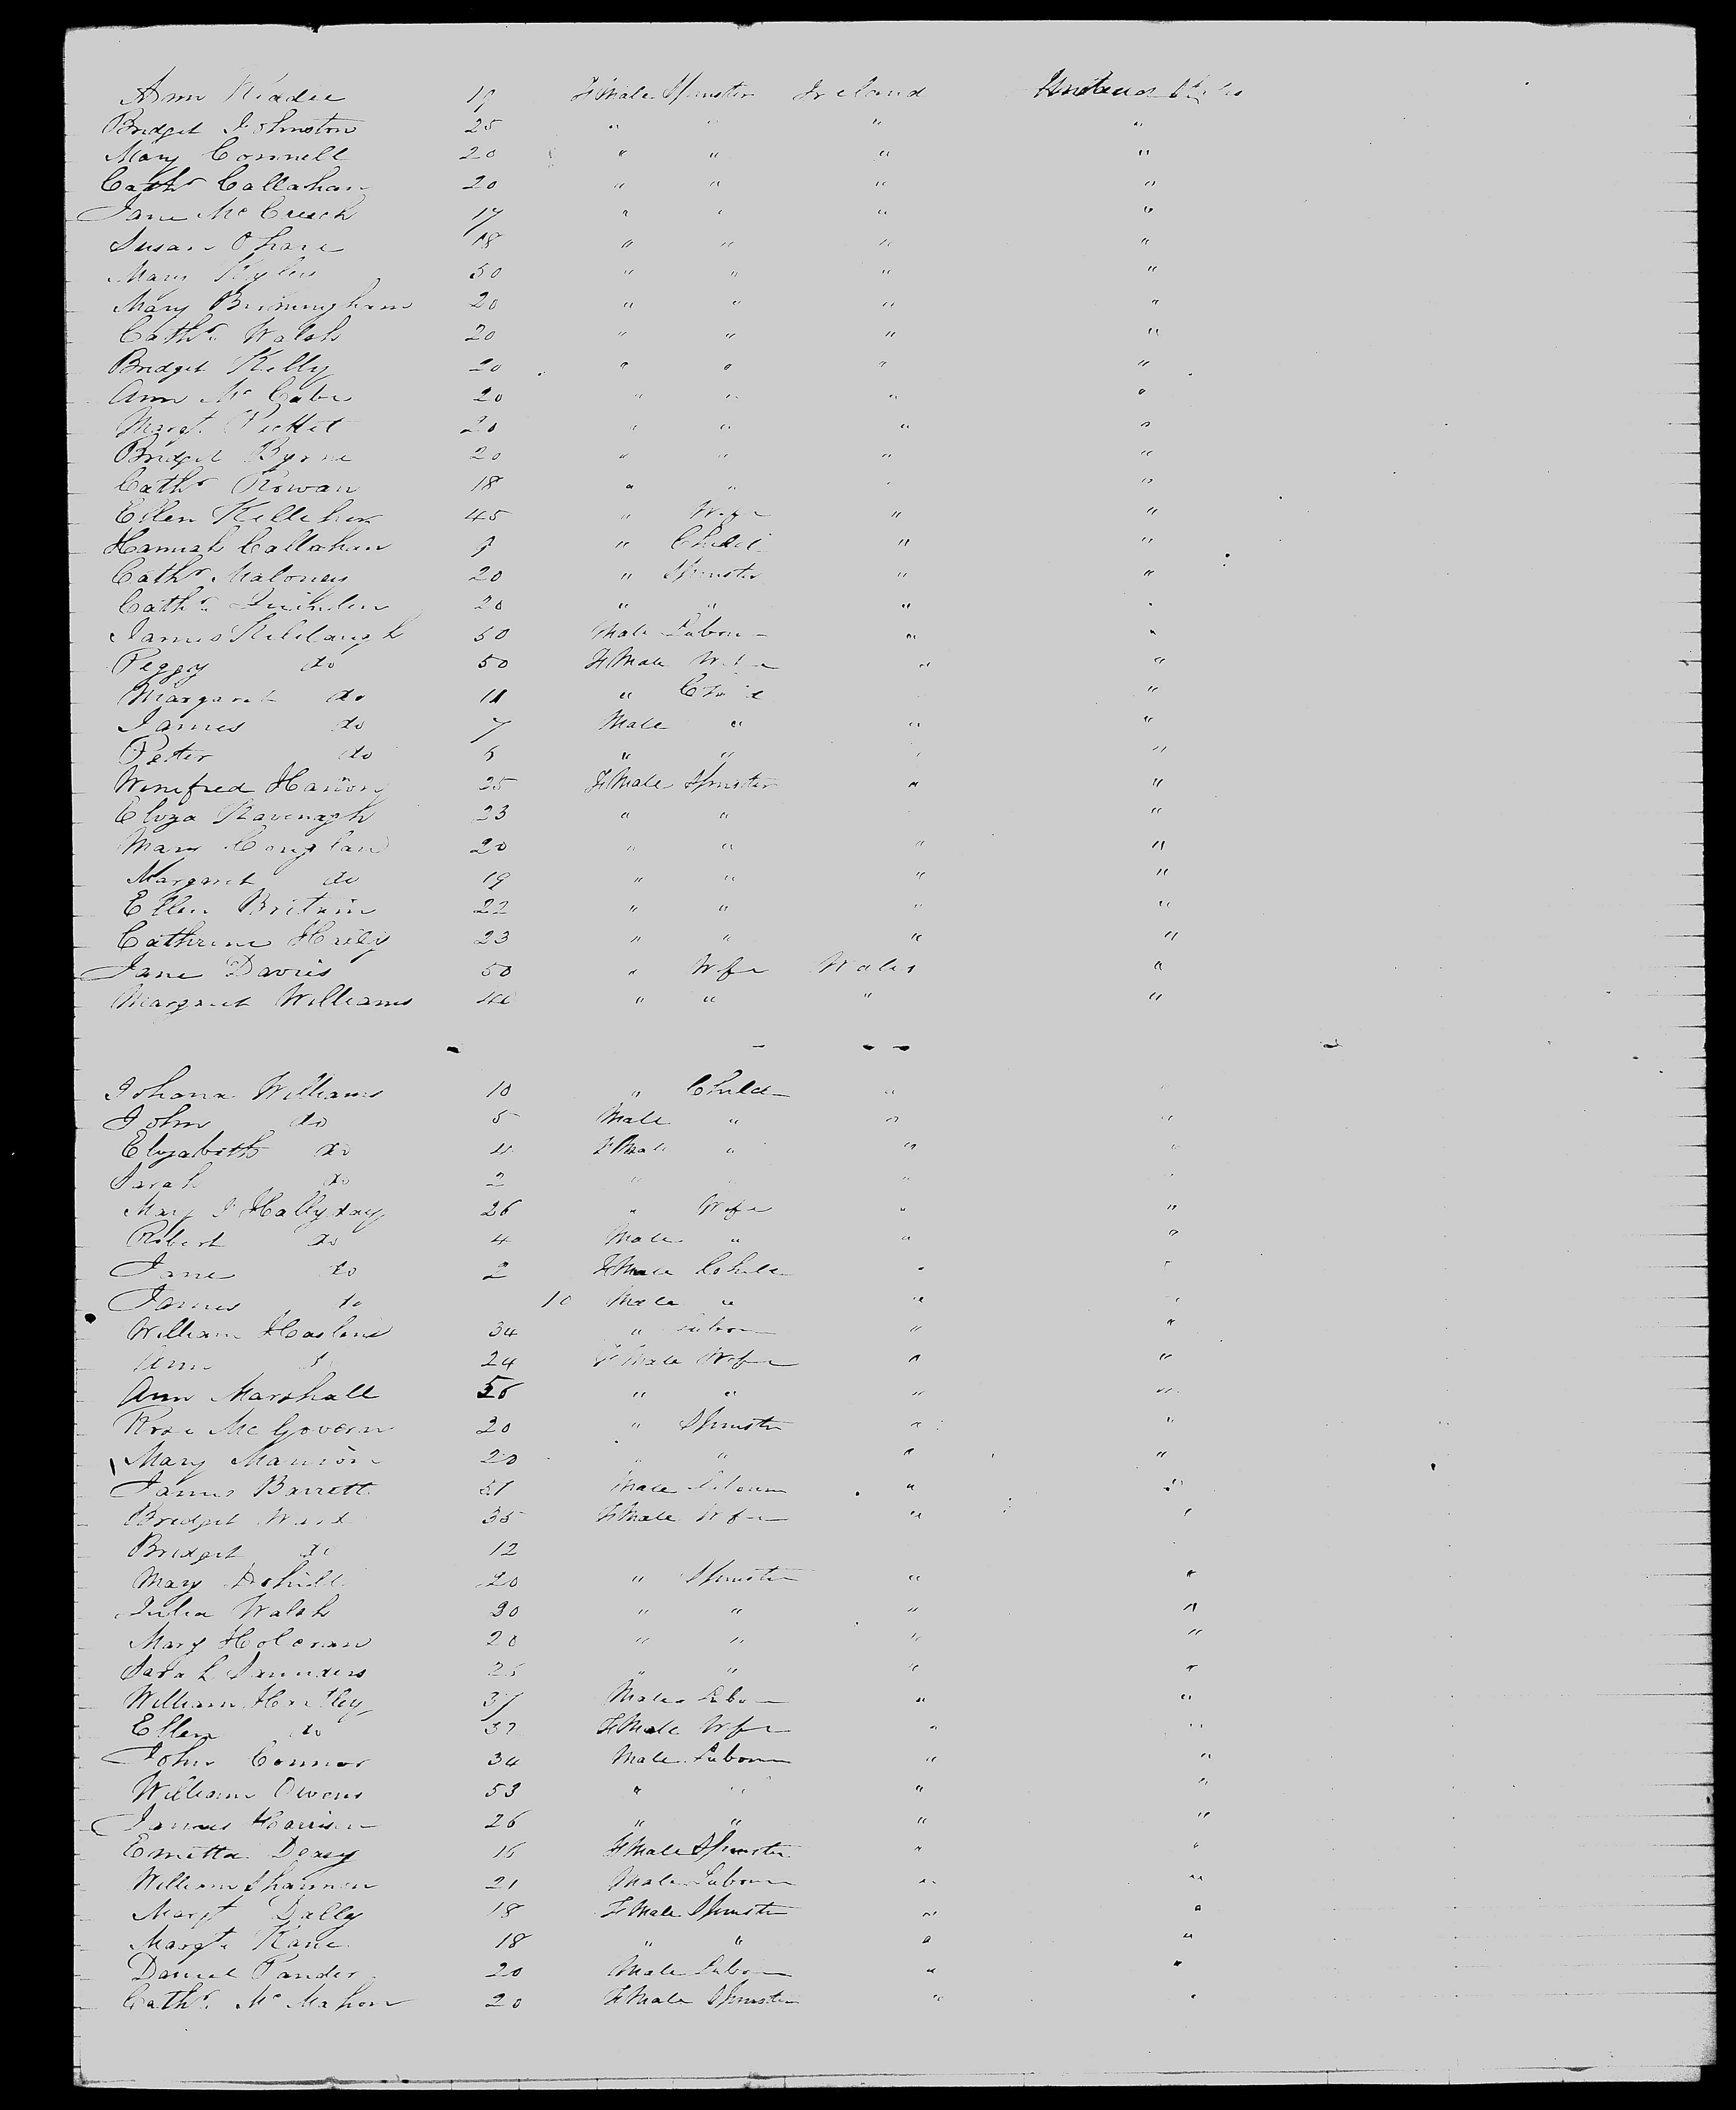 Ann 19 Female Spinster Ireland United States
Bridget Johnston 25 " " " "
Mary Connell 20 " " " "
Cathr Callahan 20 " " " "
Jane Mc 17 " " " "
Susan Ohare 18 " " " "
Mary 50 " " " "
Mary Brimingham 20 " " " "
Cathr Walsh 20 " " " "
Bridget Kelly 20 " " " "
Ann Mc Cabe 20 " " " "
Margt 20 " " " "
Bridget Byrne 20 " " " "
Cathr Rowan 18 " " " "
Ellen Kelleher 45 " Wife " "
Hannah Callahan 9 " Child " "
Cathr Maloney 20 " Spinster " "
Cathr Quinlen 20 " " " "
James 50 Male Labour " "
Peggy do 50 Female Wife " "
Margaret do 11 " Child "
James do 7 Male " " "
Peter do " " " "
Winefred 25 Female Spinster " "
Elyza Kavenagh 23 " " "
Mary Conglan 20 " " " "
Margaret do 19 " " " "
Ellen Britain 22 " " " "
Cathrine Haily 23 " " " "
Jane Davies 50 " Wife Wales "
Margaret Williams " " " "
Johana Williams 10 " Child "
John do 5 Male " " "
Elyzabeth do Female " " "
Sarah do 2 " " "
Mary J Hallyday 26 " Wife " "
Robert do 4 Male " " "
Jane do 2 Female Child " "
James do 10 Male " " "
William 34 " Labour " "
Ann 24 Female Wife " "
Ann Marshall 56 " " " "
Rose Mc Govern 20 " Spinster " "
Mary Mannion 20 " " " "
James Barrett Male Labour " "
Bridget Ward 35 Female Wife " "
Bridget do 12
Mary 20 " Spinster " "
Julia Walsh 20 " " " "
Mary Holeran 20 " " " "
Sarah Saunders " " " "
William Hartley 37 Male Labour " "
Ellen do 32 Female Wife " "
John Connor 34 Male Labour " "
William Owens 53 " " " "
James Harrison 26 " " " "
Emitta 16 Female Spinster " "
William Shannon 21 Male Labour " "
Margt Dally 18 Female Spinster " "
Margt Kane 18 " " " "
Daniel 20 Male Labour " "
Cathr Mc Mahon 20 Female Spinster " "